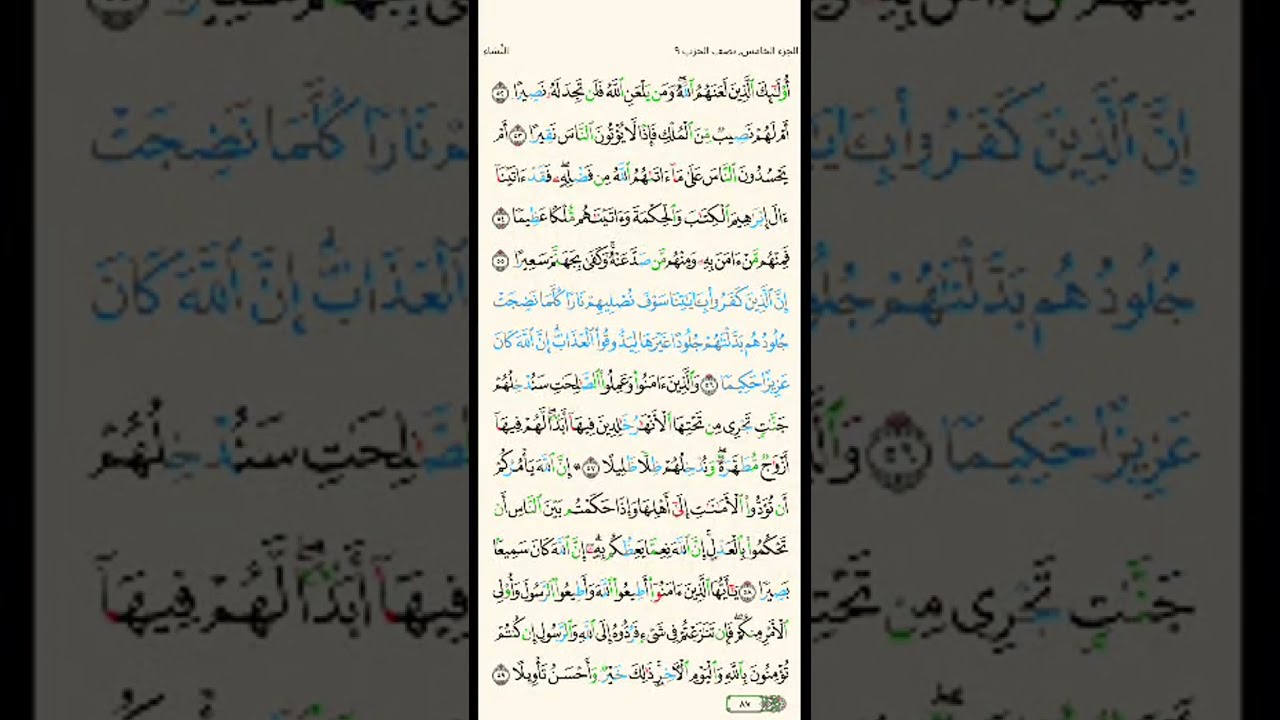 الجزء الخامس, نصف الحزب ٩
النِّسَاء
أُوْلَٰٓئِكَ ٱلَّذِينَ لَعَنَهُمُ ٱللَّهُۖ وَمَن يَلْعَنِ ٱللَّهُ فَلَن تَجِدَ لَهُۥ نَصِيرًا ٥٢
أَمْ لَهُمْ نَصِيبٌ مِّنَ ٱلْمُلْكِ فَإِذًا لَّا يُؤْتُونَ ٱلنَّاسَ نَقِيرًا ٥٣ أَمْ
يَحْسُدُونَ ٱلنَّاسَ عَلَىٰ مَآ ءَاتَىٰهُمُ ٱللَّهُ مِن فَضْلِهِۦۖ فَقَدْ ءَاتَيْنَآ
ءَالَ إِبْرَٰهِيمَ ٱلْكِتَٰبَ وَٱلْحِكْمَةَ وَءَاتَيْنَٰهُم مُّلْكًا عَظِيمًا ٥٤
فَمِنْهُم مَّنْ ءَامَنَ بِهِۦ وَمِنْهُم مَّن صَدَّ عَنْهُۚ وَكَفَىٰ بِجَهَنَّمَ سَعِيرًا ٥٥
إِنَّ ٱلَّذِينَ كَفَرُواْ بِـَٔايَٰتِنَا سَوْفَ نُصْلِيهِمْ نَارًا كُلَّمَا نَضِجَتْ
جُلُودُهُم بَدَّلْنَٰهُمْ جُلُودًا غَيْرَهَا لِيَذُوقُواْ ٱلْعَذَابَۗ إِنَّ ٱللَّهَ كَانَ
عَزِيزًا حَكِيمًا ٥٦ وَٱلَّذِينَ ءَامَنُواْ وَعَمِلُواْ ٱلصَّٰلِحَٰتِ سَنُدْخِلُهُمْ
جَنَّٰتٍ تَجْرِى مِن تَحْتِهَا ٱلْأَنْهَٰرُ خَٰلِدِينَ فِيهَآ أَبَدًاۖ لَّهُمْ فِيهَآ
أَزْوَٰجٌ مُّطَهَّرَةٌۖ وَنُدْخِلُهُمْ ظِلًّا ظَلِيلًا ٥٧ ۞ إِنَّ ٱللَّهَ يَأْمُرُكُمْ
أَن تُؤَدُّواْ ٱلْأَمَٰنَٰتِ إِلَىٰٓ أَهْلِهَا وَإِذَا حَكَمْتُم بَيْنَ ٱلنَّاسِ أَن
تَحْكُمُواْ بِٱلْعَدْلِۚ إِنَّ ٱللَّهَ نِعِمَّا يَعِظُكُم بِهِۦٓۗ إِنَّ ٱللَّهَ كَانَ سَمِيعًۢا
بَصِيرًا ٥٨ يَٰٓأَيُّهَا ٱلَّذِينَ ءَامَنُوٓاْ أَطِيعُواْ ٱللَّهَ وَأَطِيعُواْ ٱلرَّسُولَ وَأُوْلِى
ٱلْأَمْرِ مِنكُمْۖ فَإِن تَنَٰزَعْتُمْ فِى شَىْءٍ فَرُدُّوهُ إِلَى ٱللَّهِ وَٱلرَّسُولِ إِن كُنتُمْ
تُؤْمِنُونَ بِٱللَّهِ وَٱلْيَوْمِ ٱلْءَاخِرِۚ ذَٰلِكَ خَيْرٌ وَأَحْسَنُ تَأْوِيلًا ٥٩
٨٧